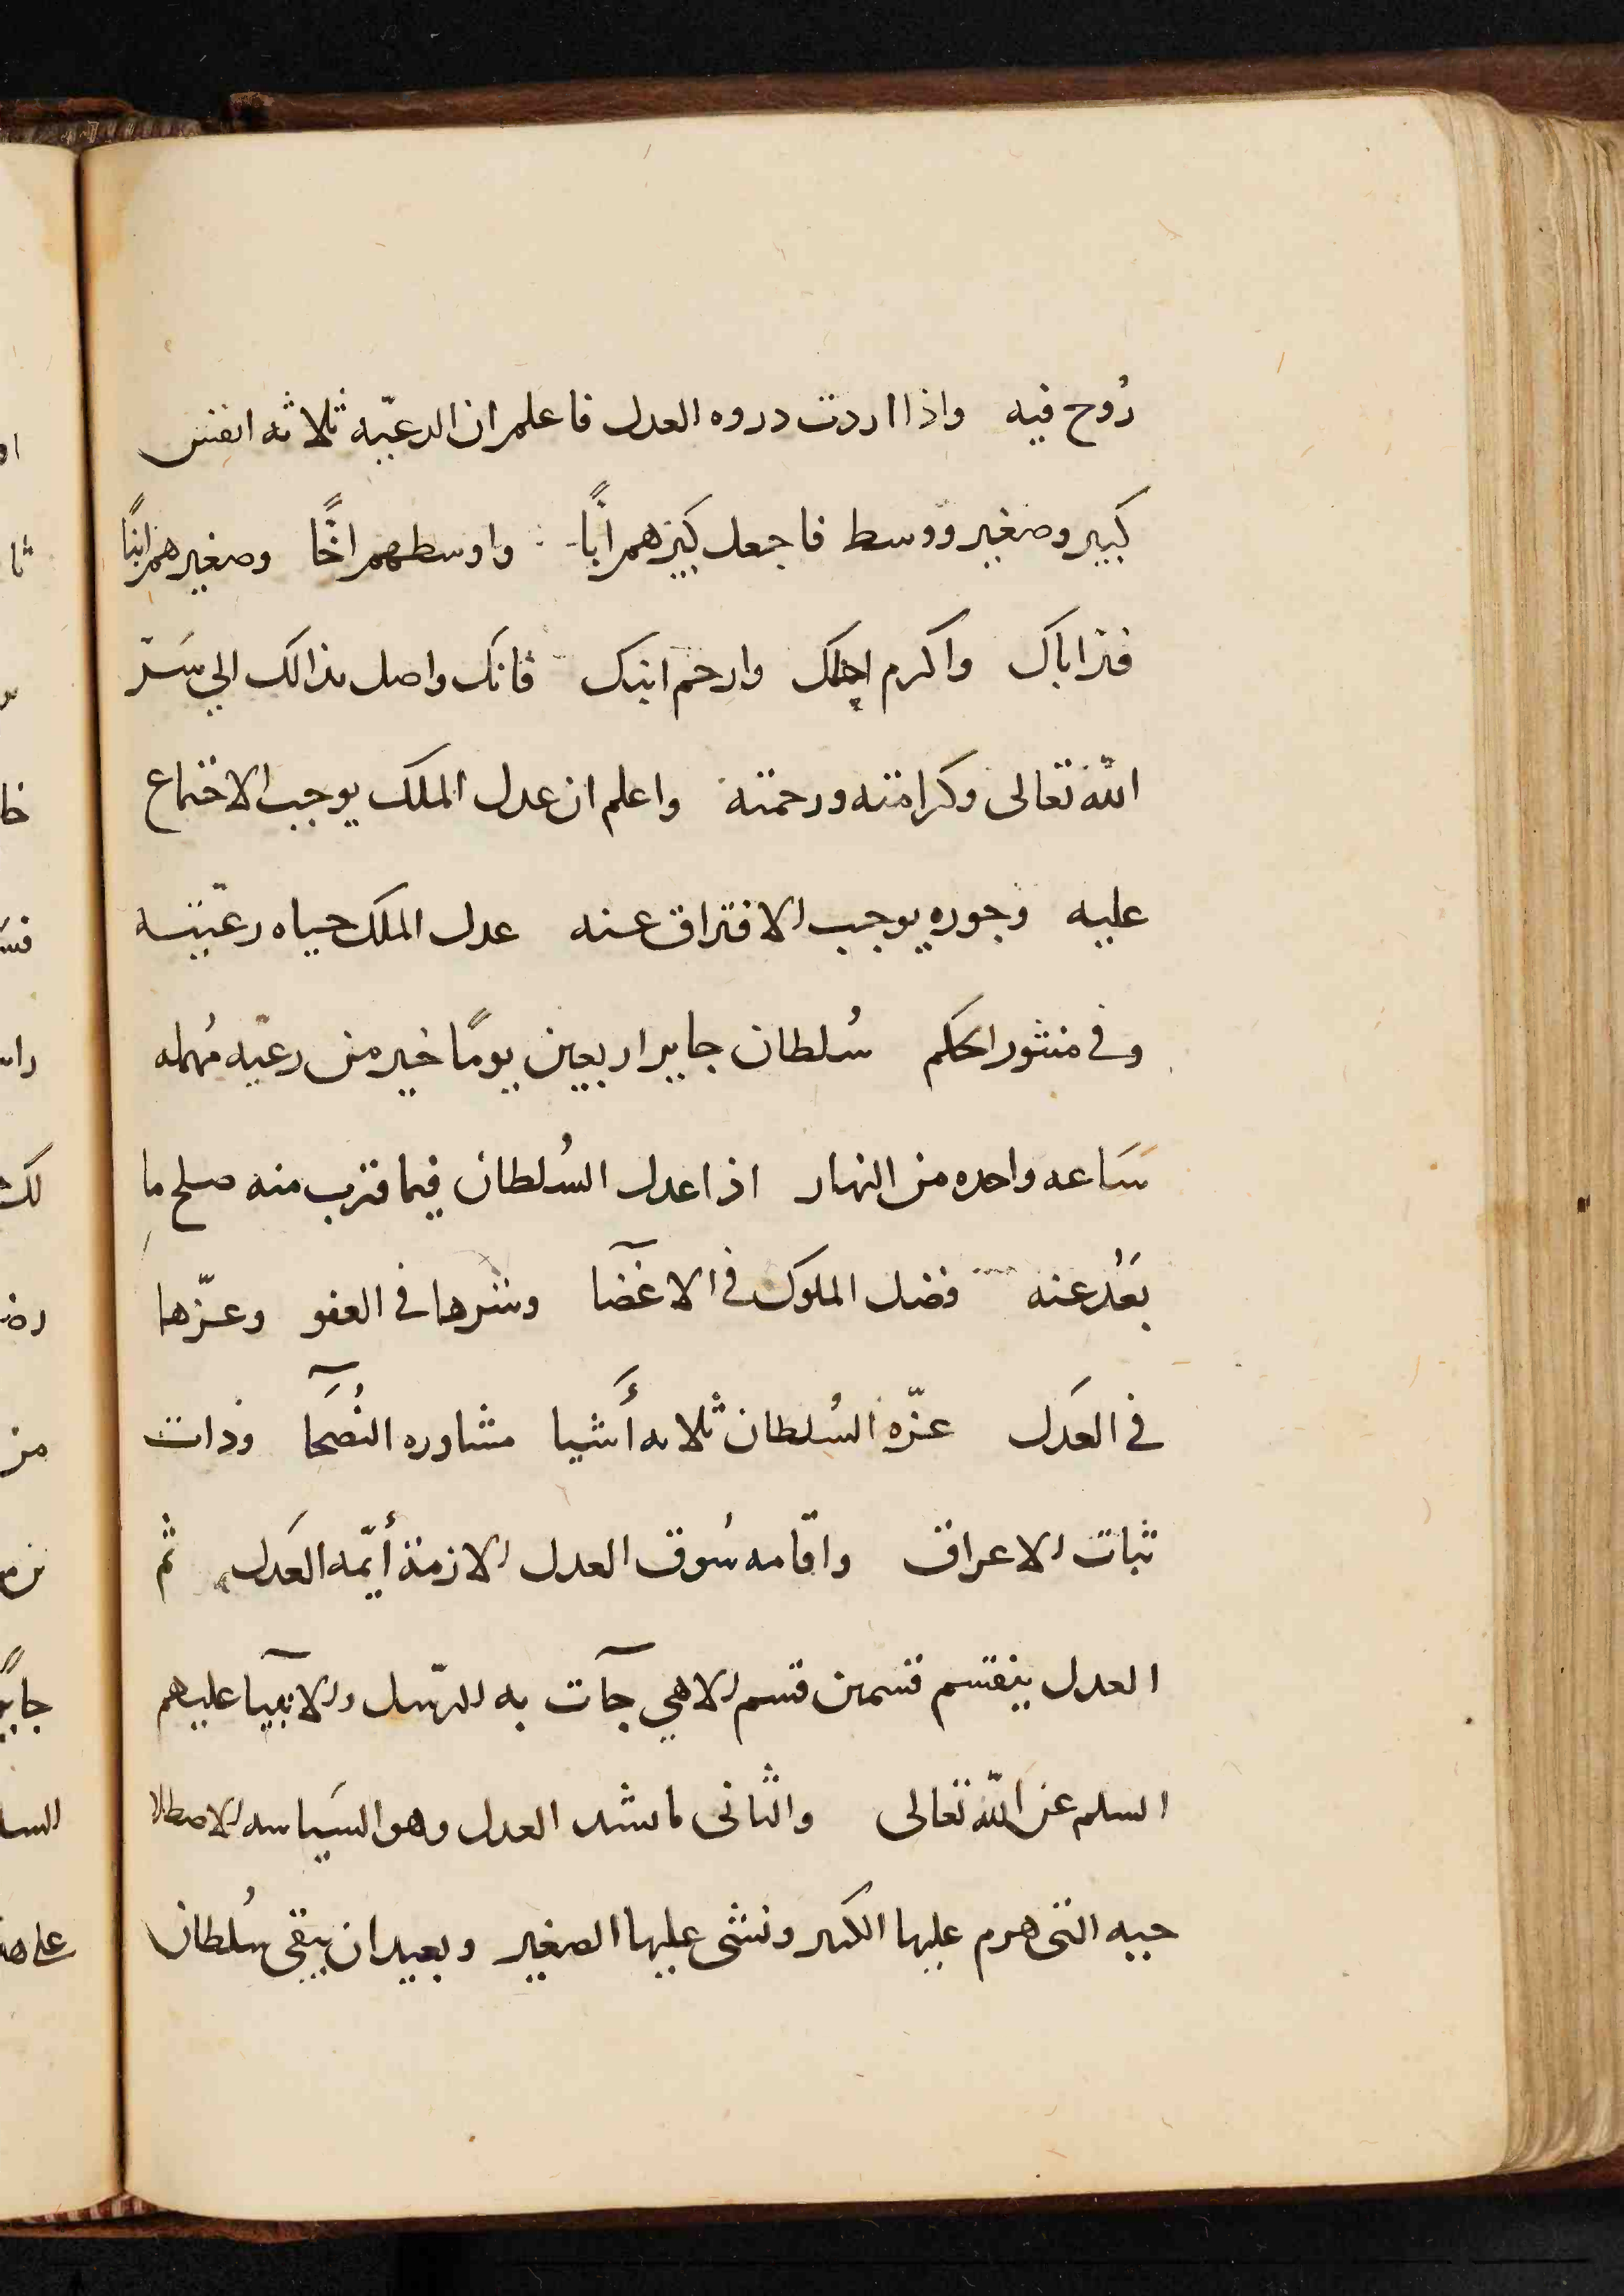 رُوح فيه واذا اردت دروه العدل فاعلم ان الرعيّه ثلاثه انفس
كبير وصغير ووسط فاجعل كبيرهم ابًا واوسطهم اخًا وصغيرهم ابنًا
فبر اباك واكرم اخاك وارحم ابنك فانك واصل بذالك الي سَرّ
اللّه تعالى وكرامته ورحمته واعلم ان عدل الملك يوجب الاجتماع
عليه وجوره يوجب الافتراق عنه عدل الملك حياه رعيّته
وفي منثور الحكم سُلطان جاير اربعين يومًا خير من رعيّه مُهمله
سَاعه واحده من النهار اذا عدل السُلطان فيما قرب منه صلح ما
بَعُد عنه فضل الملوك في الاعضآ وشرها في العفو وعزّها
في العَدل عزّه السُلطان ثلاثه أشيا مشاوره النُصَحآ وذات
ثبات الاعراق واقامه سُوق العدل الازمنة أيمّه العَدل ثم
العدل ينقسم قسمين قسم الاهي جآت به الرّسل والانبيآ عليهم
السلم عن اللّه تعالى والثانى مايشبه العدل وهو السَياسه الاصطلا
حيه التى هرم عليها الكبير ونشى عليها الصغير وبعيد ان يبقى سُلطان